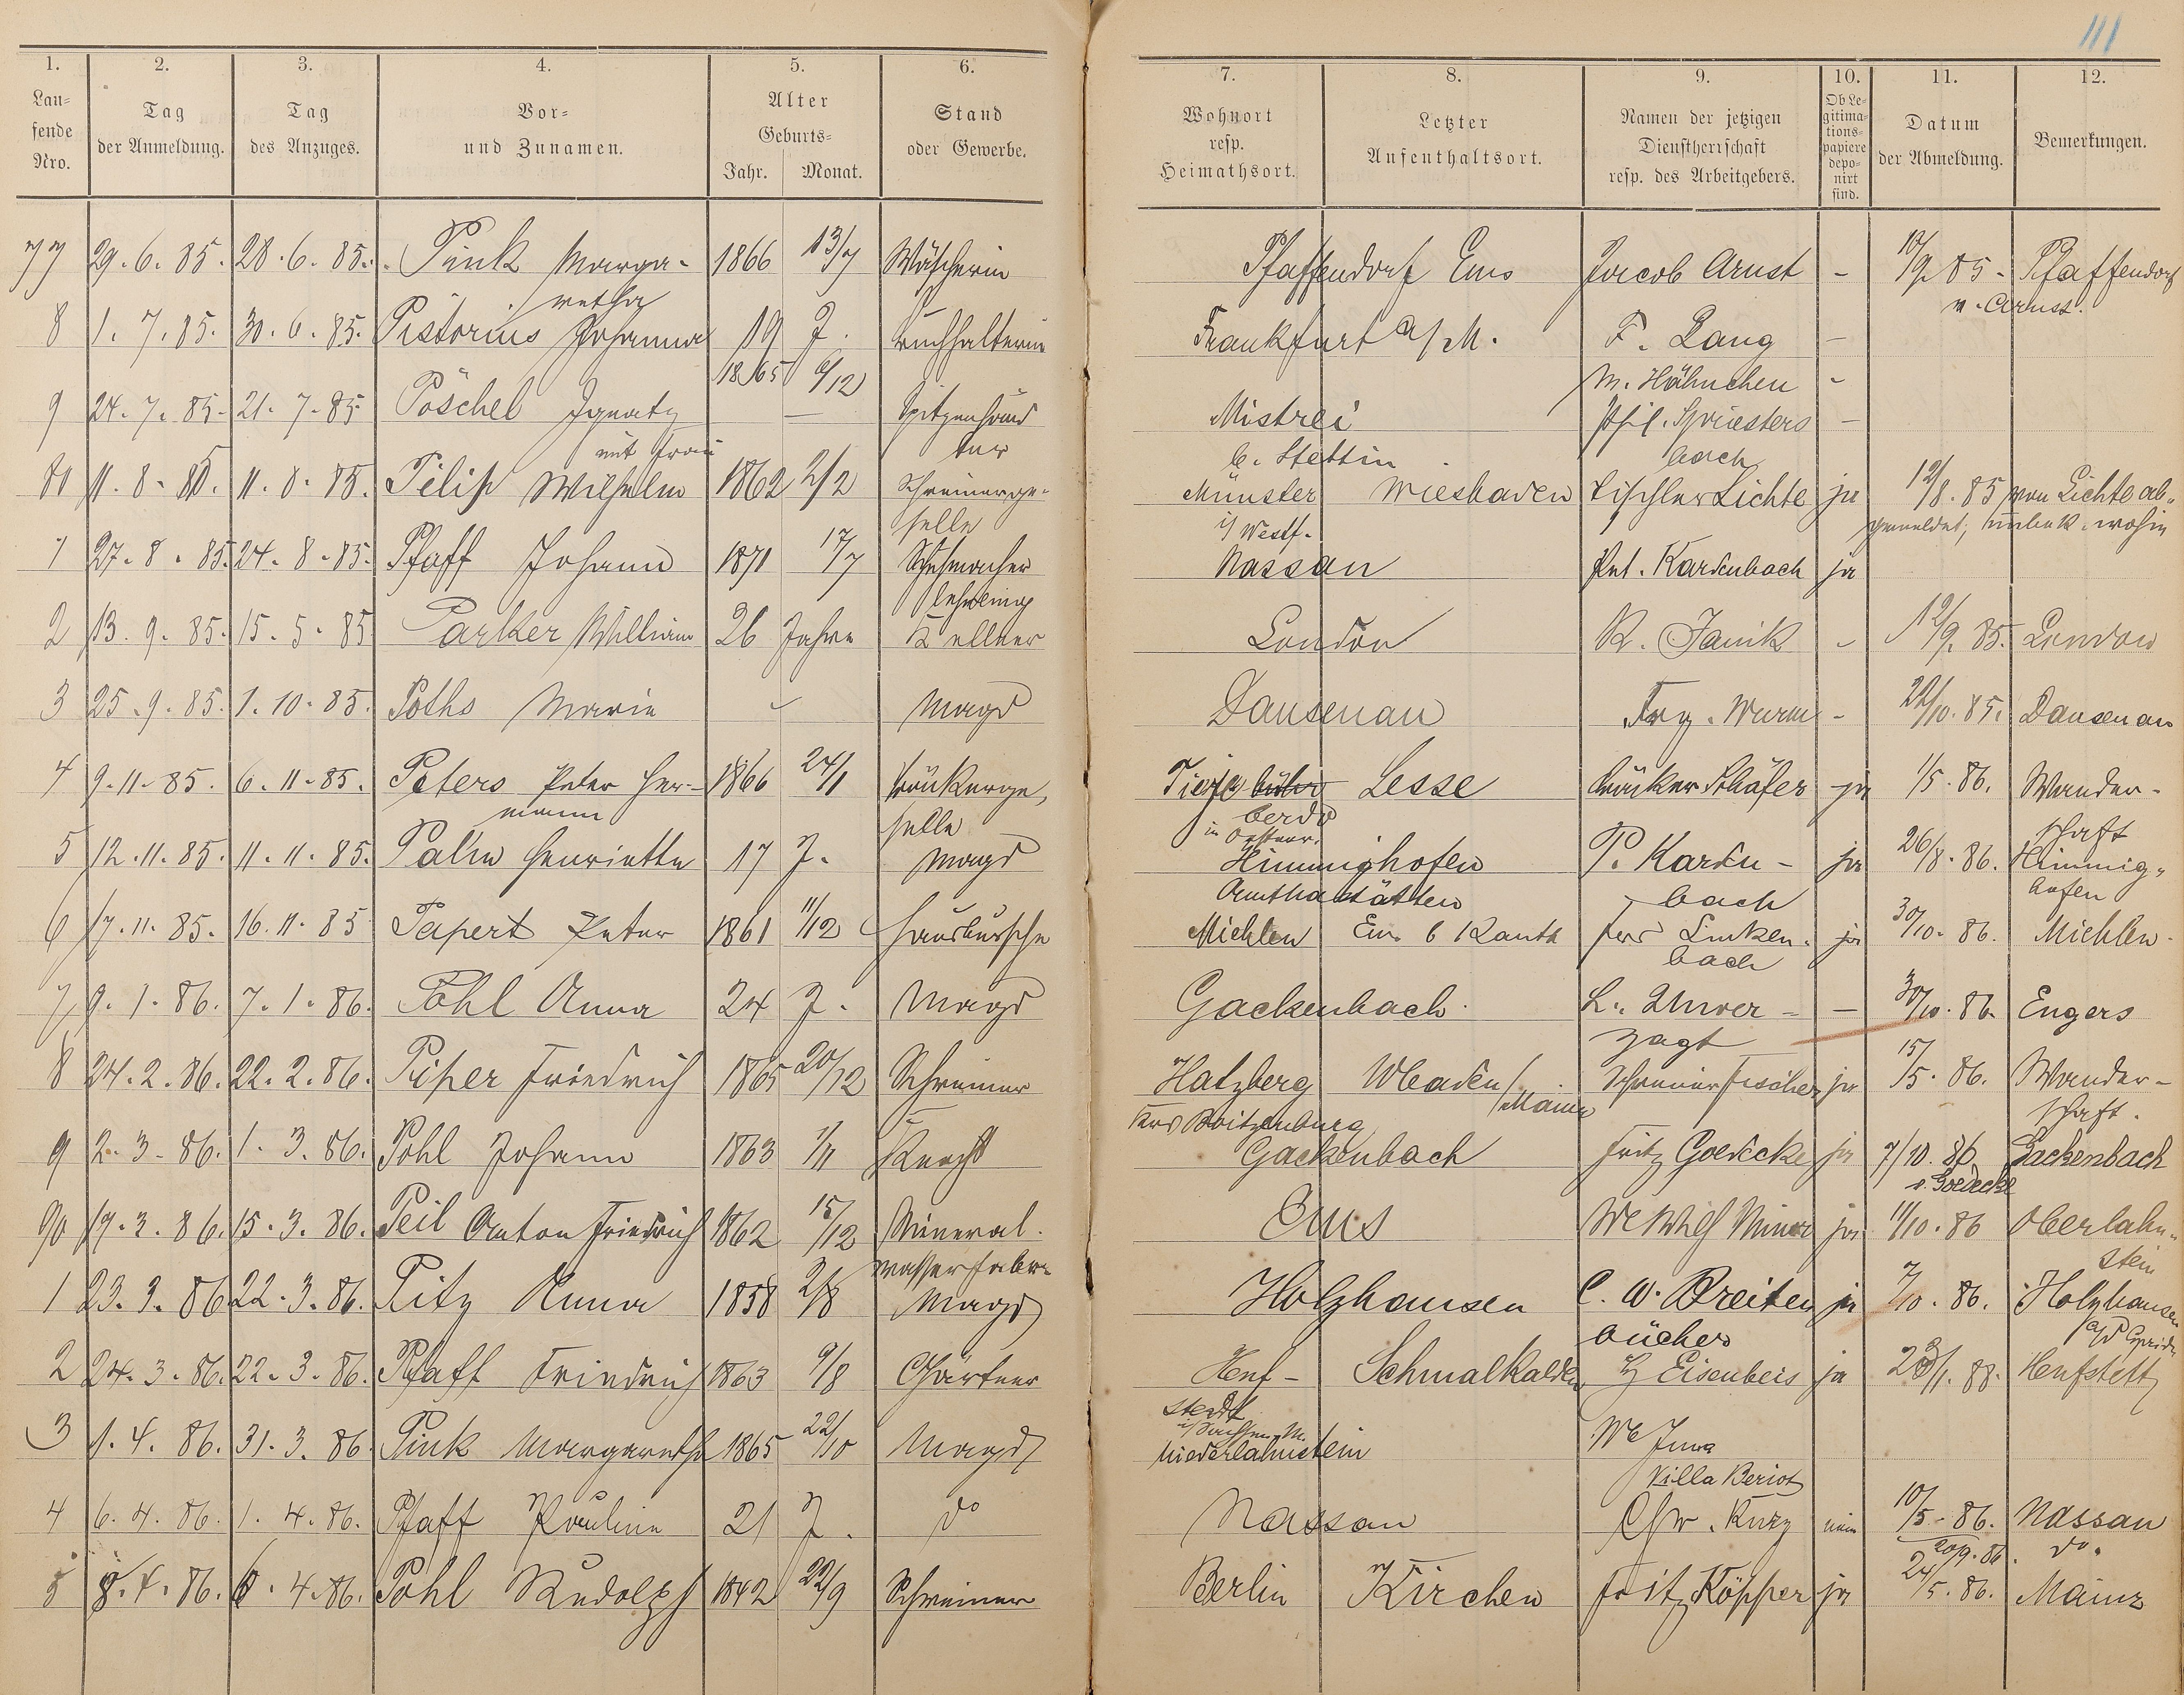 111
1. 2. 3. 4. 5. 6. 7. 8. 9. 10. 11. 12.
Lau-
fende
Nro.
Tag
der Anmeldung.
Tag
des Anzuges.
Vor-
und Zunamen.
Alter
Geburts-
Jahr. Monat.
Stand
oder Gewerbe.
Wohnort
resp.
Heimathsort.
Letzter
Aufenthaltsort.
Namen der jetzigen
Dienstherrschaft
resp. des Arbeitgebers.
Ob Le-
gitima-
tions-
papiere
depo-
nirt
sind.
Datum
der Abmeldung.
Bemerkungen.
77 29.6.85. 28.6.85. Pink Marga- 1866 13/7 Wäscherin Pfaffendorf Ems Jacob Arnst - 10/9 85 - Pfaffendorf
retha v. Arnst.
8 1.7.85. 30.6.85. Pistorius Johanna 19 J. Buchhalterin Frankfurt a/M. F. Lang -
1865 6/12 M. Hähnchen -
9 24.7.85. 21.7.85 Pöschel Ignatz — Spitzenhänd Mistrei Phil. Spriesters -
mit Frau ler b. Stettin bach
80 11.8.85. 11.8.85. Pilip Wilhelm 1862 2/2 Schreinerge- Münster Wiesbaden Tischler Lichte ja 12/8.85 von Lichte ab-
selle i/ Westf. gemeldet, unbek. wohin
1 27.8.85. 24.8.85. Pfaff Johann 1871 17/7 Schuhmacher Nassau Pet. Kardenbach ja
lehrling
2 13.9.85. 15.5.85 Parker William 26 Jahre Kellner London R. Janik - 12/9.85. London
3 25.9.85. 1.10.85. Poths Marie - Magd Dausenau Frz. Wurm - 22/10.85. Dausenau
4 9.11.85. 6.11.85. Peters Peter Her- 1866 24/1 Bäckerge- Lesse Bäcker Schäfer ja 1/5.86. Wander-
mann selle schaft
5 12.11.85. 11.11.85. Palm Henriette 17 J. Magd Himmighofen P. Karden- ja 26/8.86. Himmig-
Amt Nastätten bach hofen
6 17.11.85. 16.11.85 Papert Peter 1861 11/12 Hausbursche Miehlen Ew. Linken- ja 30/10.86. Miehlen
bach
7 9.1.86. 7.1.86. Pohl Anna 24 J. Magd Gackenbach L. Unver- — 30/10.86. Engers
zagt
8 24.2.86. 22.2.86. Piper Friedrich 1865 20/12 Schreiner Hatzberg Wbaden / Mainz Schreiner Fischer ja 15/5.86. Wander-
schaft.
9 2.3.86. 1.3.86. Pohl Johann 1863 1/11 Knecht Gackenbach Fritz Goedecke ja 7/10.86 Gackenbach
v. Goedecke
90 17.3.86. 15.3.86. Peil Anton Friedrich 1862 15/12 Mineral- Ems We Wilh Minor ja 11/10.86 Oberlahn-
wasserfabr. stein
1 23.3.86 22.3.86. Pitz Anna 1858 2/8 Magd Holzhausen C. W. Breiten ja 7/10.86. Holzhausen
bücher
2 24.3.86. 22.3.86. Pfaff Friedrich 1863 9/8 Gärtner Henf- Schmalkalden Eisenbeis ja 23/1.88. Henfstett
stedt
i/ Sachsen M.
3 1.4.86. 31.3.86 Pink Margaretha 1865 22/10 Magd Niederlahnstein We Jung
Villa Beriot
4 6.4.86. 1.4.86. Pfaff Pauline 21 J. do Nassau Chr. Kurz nein 10/5.86. Nassau
20/9.86. do.
5 8.4.86. 6.4.86. Pohl Rudolph 1842 22/9 Schreiner Berlin Kirchen Fritz Köpper ja 24/5.86. Mainz